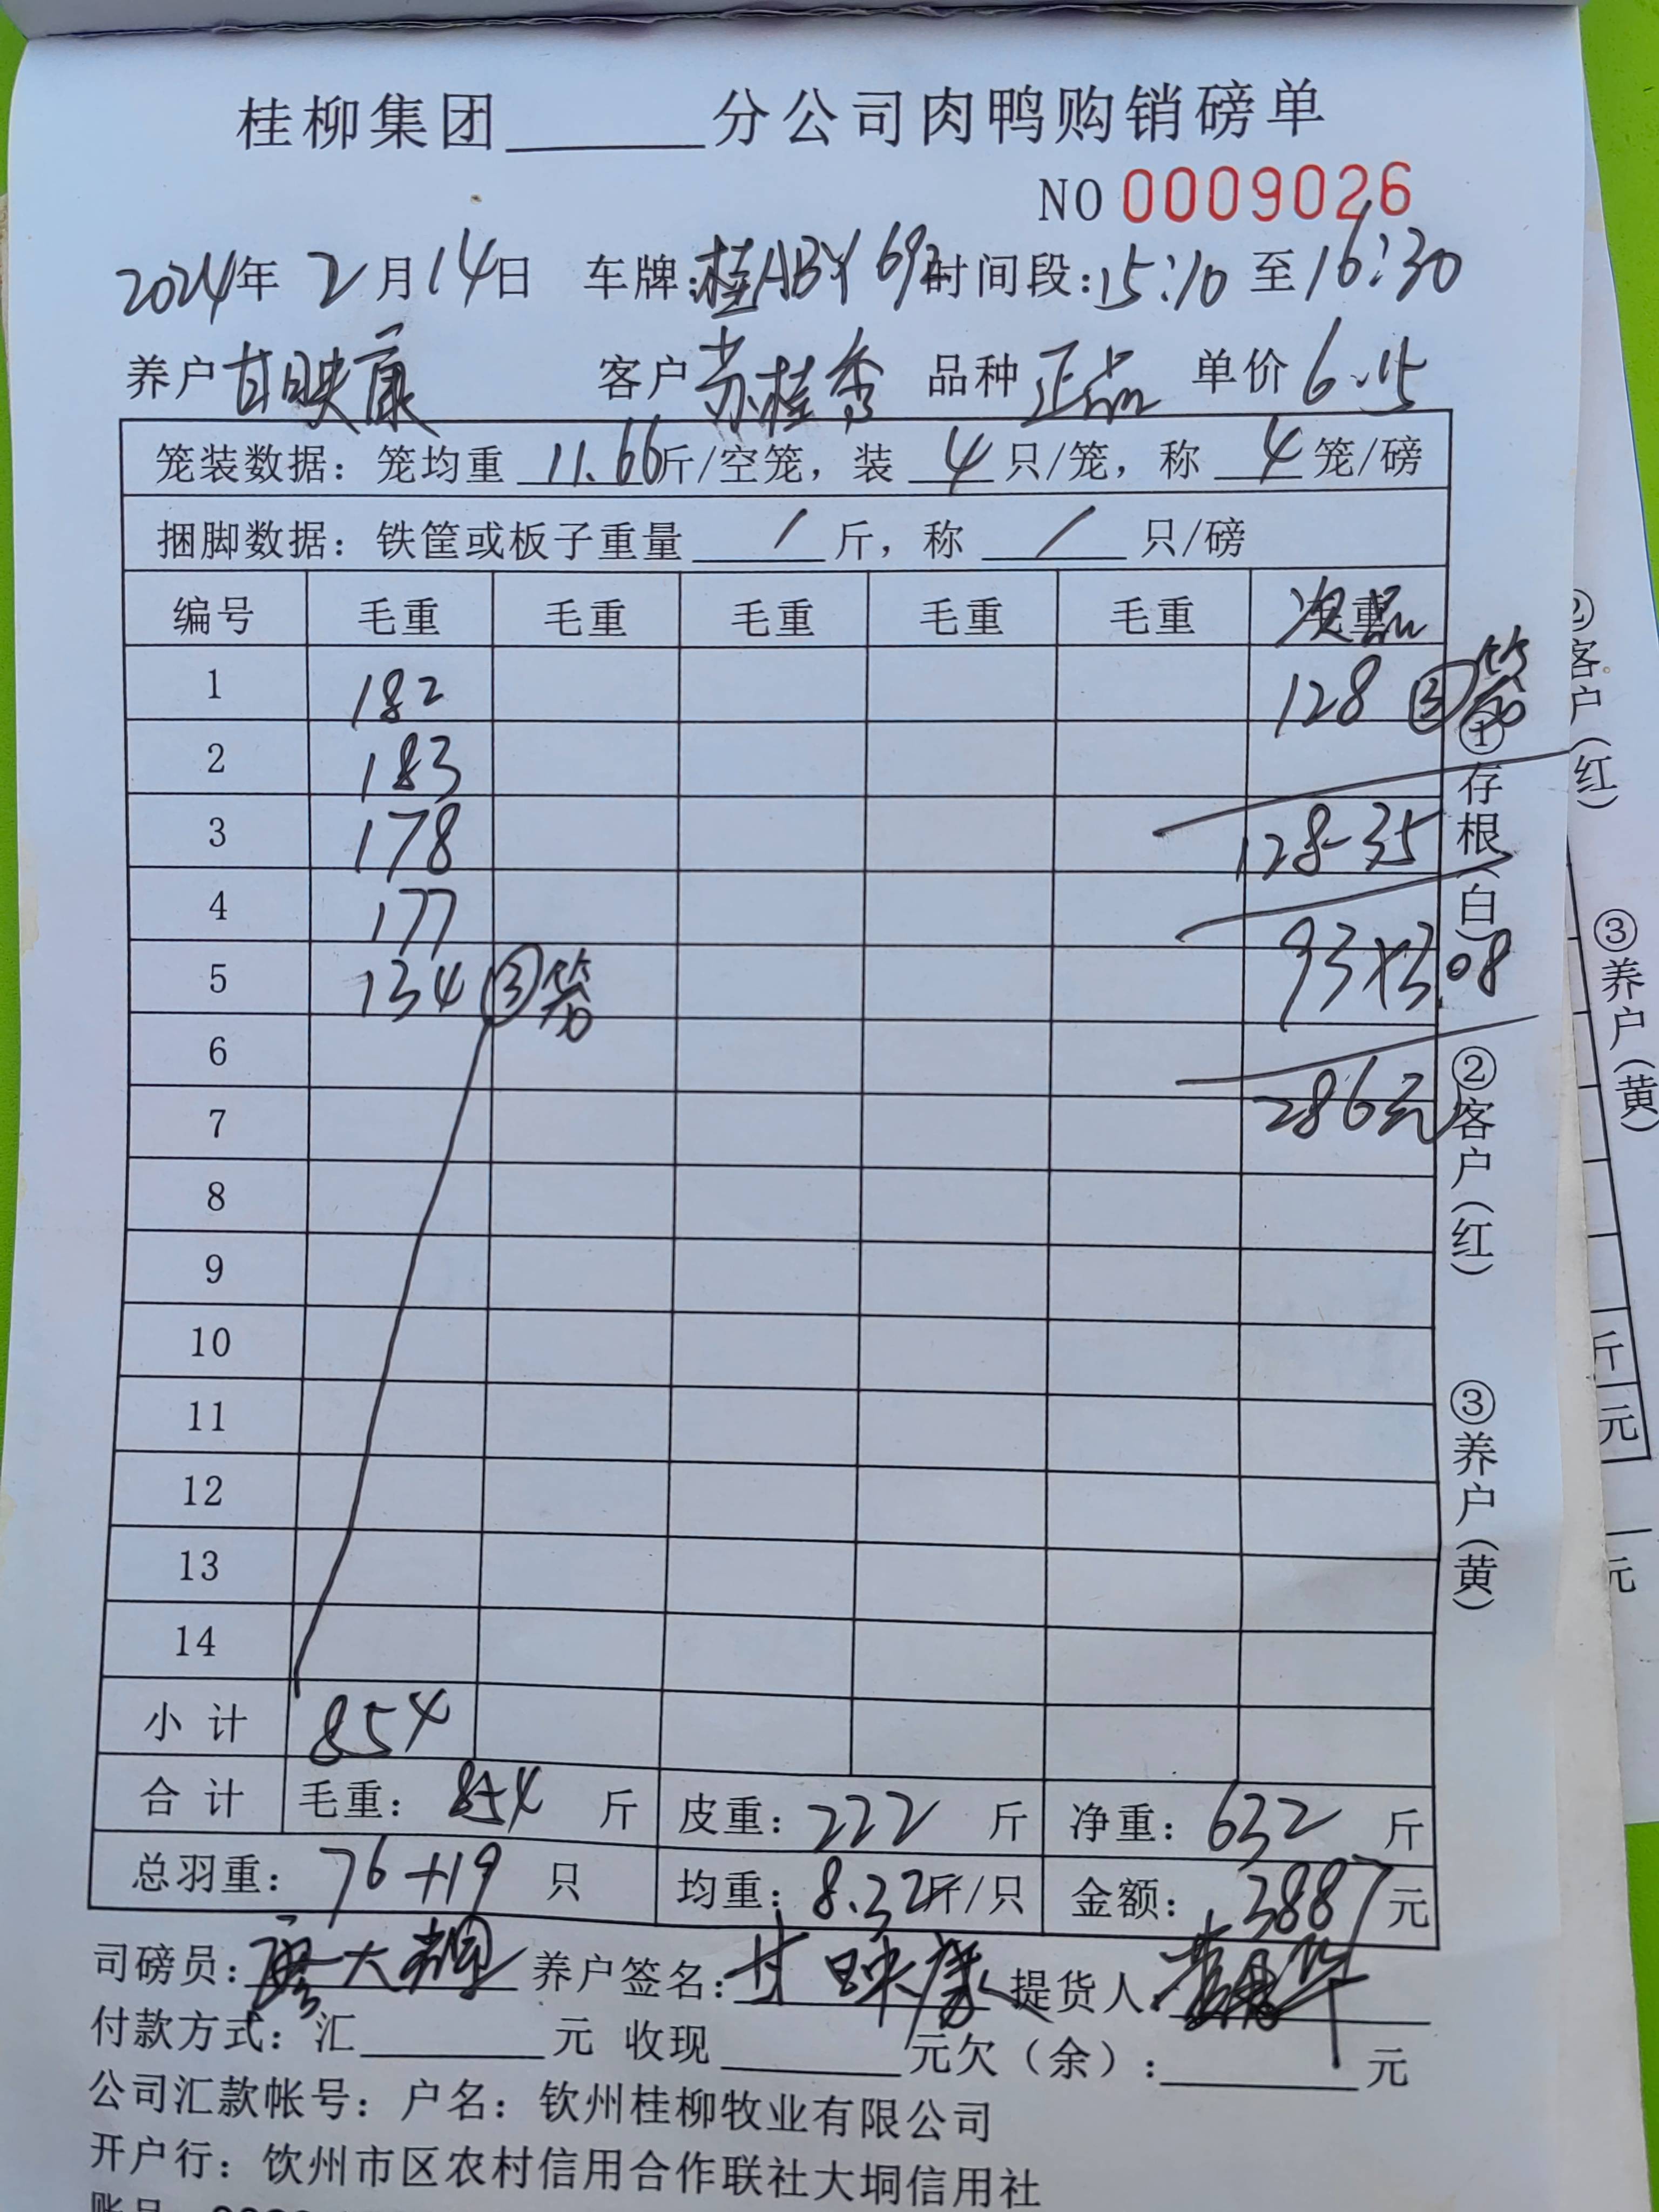 桂柳集团______分公司肉鸭购销磅单
NO 0009026
2024年 2月14日 车牌:桂ABY69 时间段:15:10 至16:30
养户 甘映康 客户 苏桂秀 品种 正品 单价 6.15
笼装数据：笼均重 11.66斤/空笼，装 4 只/笼，称 4 笼/磅
捆脚数据：铁筐或板子重量 / 斤，称 / 只/磅
编号 毛重 毛重 毛重 毛重 毛重 次品
1 182 128 ③
2 183
3 178 128-35
4 177
5 134 ③ 93×3.08
6
7 286元
8
9
10
11
12
13
14
小计 854
合计 毛重：854 斤 皮重：222 斤 净重：632 斤
总羽重：76+19 只 均重：8.32斤/只 金额：3887元
司磅员:廖大 养户签名:甘映康 提货人
付款方式：汇______元 收现______元欠（余）:______元
公司汇款帐号：户名：钦州桂柳牧业有限公司
开户行：饮州市区农村信用合作联社大垌信用社
①存根（白） ②客户（红） ③养户（黄）
②客户（红） ③养户（黄）
斤
元
元